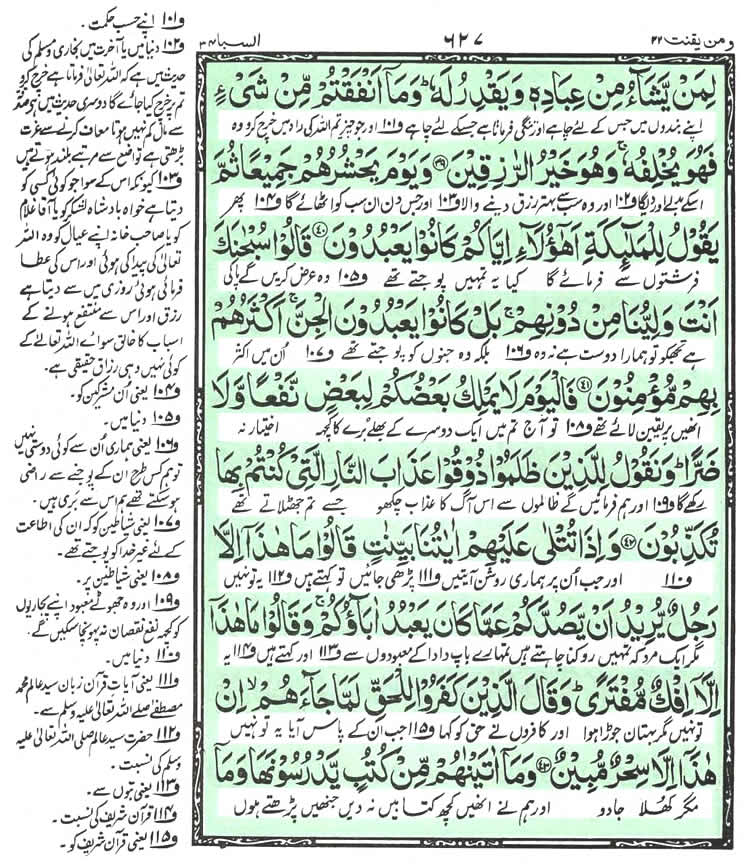 ومن یقنت ۲۲ ۶۲۷ السبا ۳۴
لِمَنْ يَّشَآءُ مِنْ عِبَادِهٖ وَيَقْدِرُ لَهٗ ؕ وَمَآ اَنْفَقْتُمْ مِّنْ شَيْءٍ
اپنے بندوں میں جس کے لئے چاہے اور تنگی فرماتا ہے جسکے لئے چاہے ف۱۰۱ اور جو چیز تم اللہ کی راہ میں خرچ کرو وہ
فَهُوَ يُخْلِفُهٗ ۚ وَهُوَ خَيْرُ الرّٰزِقِيْنَ ﴿۳۹﴾ وَيَوْمَ يَحْشُرُهُمْ جَمِيْعًا ثُمَّ
اسکے بدلے اور دیگا ف۱۰۲ اور وہ سب سے بہتر رزق دینے والا ف۱۰۳ اور جس دن ان سب کو اٹھائے گا ف۱۰۴ پھر
يَقُوْلُ لِلْمَلٰٓئِكَةِ اَهٰٓؤُلَآءِ اِيَّاكُمْ كَانُوْا يَعْبُدُوْنَ ﴿۴۰﴾ قَالُوْا سُبْحٰنَكَ
فرشتوں سے فرمائے گا کیا یہ تمہیں پوجتے تھے ف۱۰۵ وہ عرض کریں گے پاکی
اَنْتَ وَلِيُّنَا مِنْ دُوْنِهِمْ ۚ بَلْ كَانُوْا يَعْبُدُوْنَ الْجِنَّ ۚ اَكْثَرُهُمْ
ہے تجھکو تو ہمارا دوست ہے نہ وہ ف۱۰۶ بلکہ وہ جنوں کو پوجتے تھے ف۱۰۷ اُن میں اکثر
بِهِمْ مُّؤْمِنُوْنَ ﴿۴۱﴾ فَالْيَوْمَ لَا يَمْلِكُ بَعْضُكُمْ لِبَعْضٍ نَّفْعًا وَّلَا
انھیں پر یقین لائے تھے ف۱۰۸ تو آج تم میں ایک دوسرے کے بھلے بُرے کا کچھ اختیار نہ
ضَرًّا ؕ وَنَقُوْلُ لِلَّذِيْنَ ظَلَمُوْا ذُوْقُوْا عَذَابَ النَّارِ الَّتِيْ كُنْتُمْ بِهَا
رکھے گا ف۱۰۹ اور ہم فرمائیں گے ظالموں سے اس آگ کا عذاب چکھو جسے تم جھٹلاتے تھے
تُكَذِّبُوْنَ ﴿۴۲﴾ وَاِذَا تُتْلٰى عَلَيْهِمْ اٰيٰتُنَا بَيِّنٰتٍ قَالُوْا مَا هٰذَآ اِلَّا
ف۱۱۰ اور جب اُن پر ہماری روشن آیتیں ف۱۱۱ پڑھی جائیں تو کہتے ہیں ف۱۱۲ یہ تو نہیں
رَجُلٌ يُّرِيْدُ اَنْ يَّصُدَّكُمْ عَمَّا كَانَ يَعْبُدُ اٰبَآؤُكُمْ ۚ وَقَالُوْا مَا هٰذَآ
مگر ایک مرد کہ تمہیں روکنا چاہتے ہیں تمہارے باپ دادا کے معبودوں سے ف۱۱۳ اور کہتے ہیں ف۱۱۴ یہ
اِلَّآ اِفْكٌ مُّفْتَرًى ؕ وَقَالَ الَّذِيْنَ كَفَرُوْا لِلْحَقِّ لَمَّا جَآءَهُمْ ۙ اِنْ
تو نہیں مگر بہتان جوڑا ہوا اور کافروں نے حق کو کہا ف۱۱۵ جب ان کے پاس آیا یہ تو نہیں
هٰذَآ اِلَّا سِحْرٌ مُّبِيْنٌ ﴿۴۳﴾ وَمَآ اٰتَيْنٰهُمْ مِّنْ كُتُبٍ يَّدْرُسُوْنَهَا وَمَآ
مگر کھلا جادو اور ہم نے انھیں کچھ کتابیں نہ دیں جنھیں پڑھتے ہوں
ف۱۰۱ اپنے حسب حکمت۔
ف۱۰۲ دنیا میں یا آخرت میں بخاری و مسلم کی
حدیث میں ہے کہ اللہ تعالیٰ فرماتا ہے خرچ کرو
تم پر خرچ کیا جائے گا دوسری حدیث میں ہے صدقہ
سے مال کم نہیں ہوتا معاف کرنے سے عزت
بڑھتی ہے تواضع سے مرتبے بلند ہوتے ہیں
ف۱۰۳ کیونکہ اس کے سوا جو کوئی کسی کو
دیتا ہے خواہ بادشاہ لشکر کو یا آقا غلام
کو یا صاحب خانہ اپنے عیال کو وہ اللہ
تعالیٰ کی پیدا کی ہوئی اور اس کی عطا
فرمائی ہوئی روزی میں سے دیتا ہے
رزق اور اس سے منتفع ہونے کے
اسباب کا خالق سوائے اللہ تعالیٰ کے
کوئی نہیں وہی رزاق حقیقی ہے۔
ف۱۰۴ یعنی اُن مشرکین کو۔
ف۱۰۵ دنیا میں۔
ف۱۰۶ یعنی ہماری اُن سے کوئی دوستی نہیں
تو ہم کس طرح ان کے پوجنے سے راضی
ہوسکتے تھے ہم اس سے بَری ہیں۔
ف۱۰۷ یعنی شیاطین کو کہ ان کی اطاعت
کے لئے غیر خدا کو پوجتے تھے۔
ف۱۰۸ یعنی شیاطین پر۔
ف۱۰۹ اور وہ جھوٹے معبود اپنے پجاریوں
کو کچھ نفع نقصان نہ پہونچا سکیں گے۔
ف۱۱۰ دنیا میں۔
ف۱۱۱ یعنی آیات قرآن زبان سید عالم محمد
مصطفےٰ صلے اللہ تعالیٰ علیہ وسلم سے۔
ف۱۱۲ حضرت سید عالم صلی اللہ تعالیٰ علیہ
وسلم کی نسبت۔
ف۱۱۳ یعنی بتوں سے۔
ف۱۱۴ قرآن شریف کی نسبت۔
ف۱۱۵ یعنی قرآن شریف کو۔